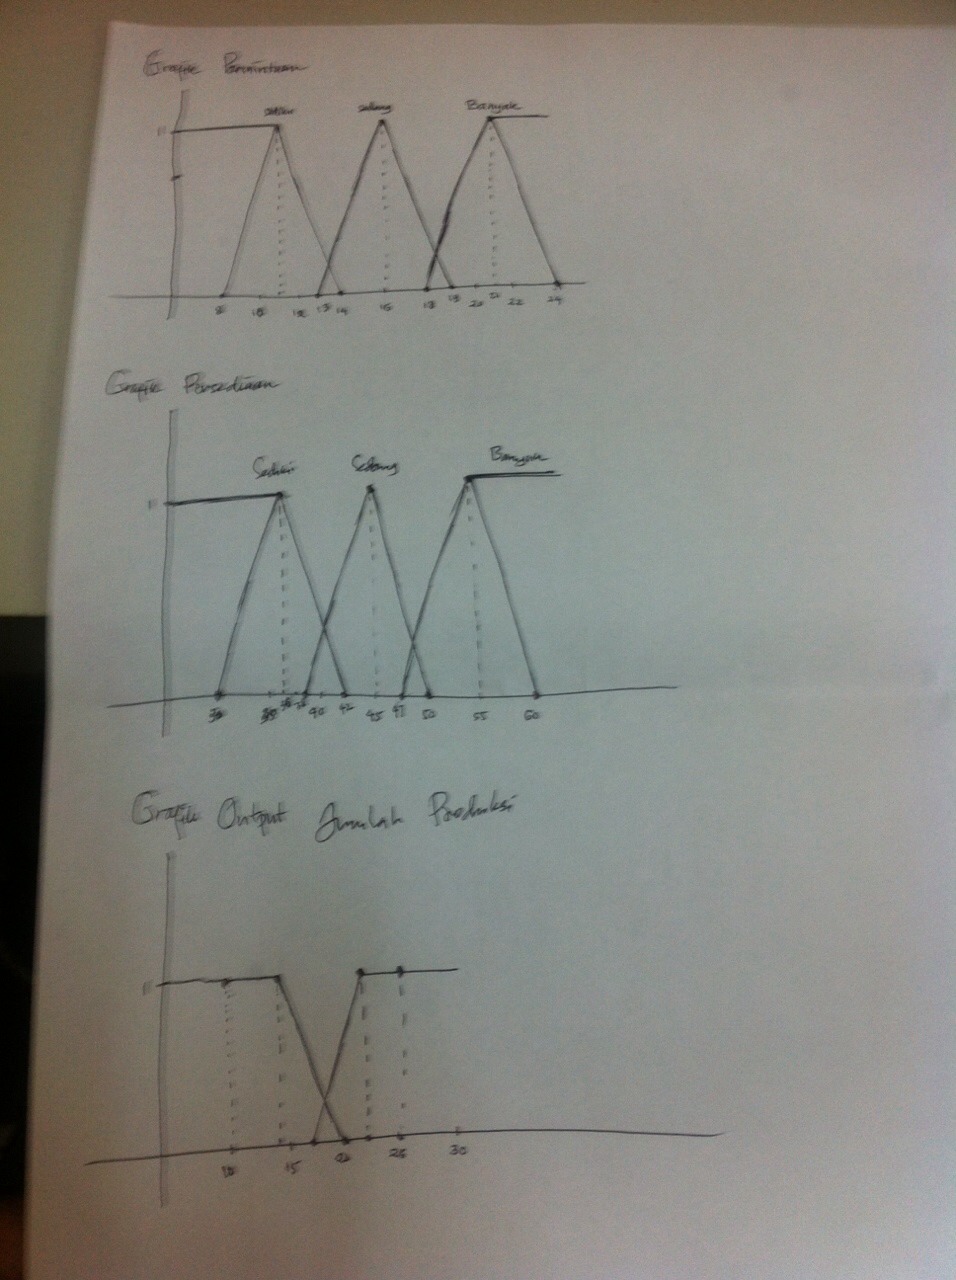 Grafik Permintaan
Sedang Banyak
1
8 10 12 13 14 16 18 19 20 21 22 24
Grafik Persediaan
Sedikit Sedang Banyak
1
30 35 38 40 42 45 47 50 55 60
Grafik Output Jumlah Produksi
1
10 15 20 25 30